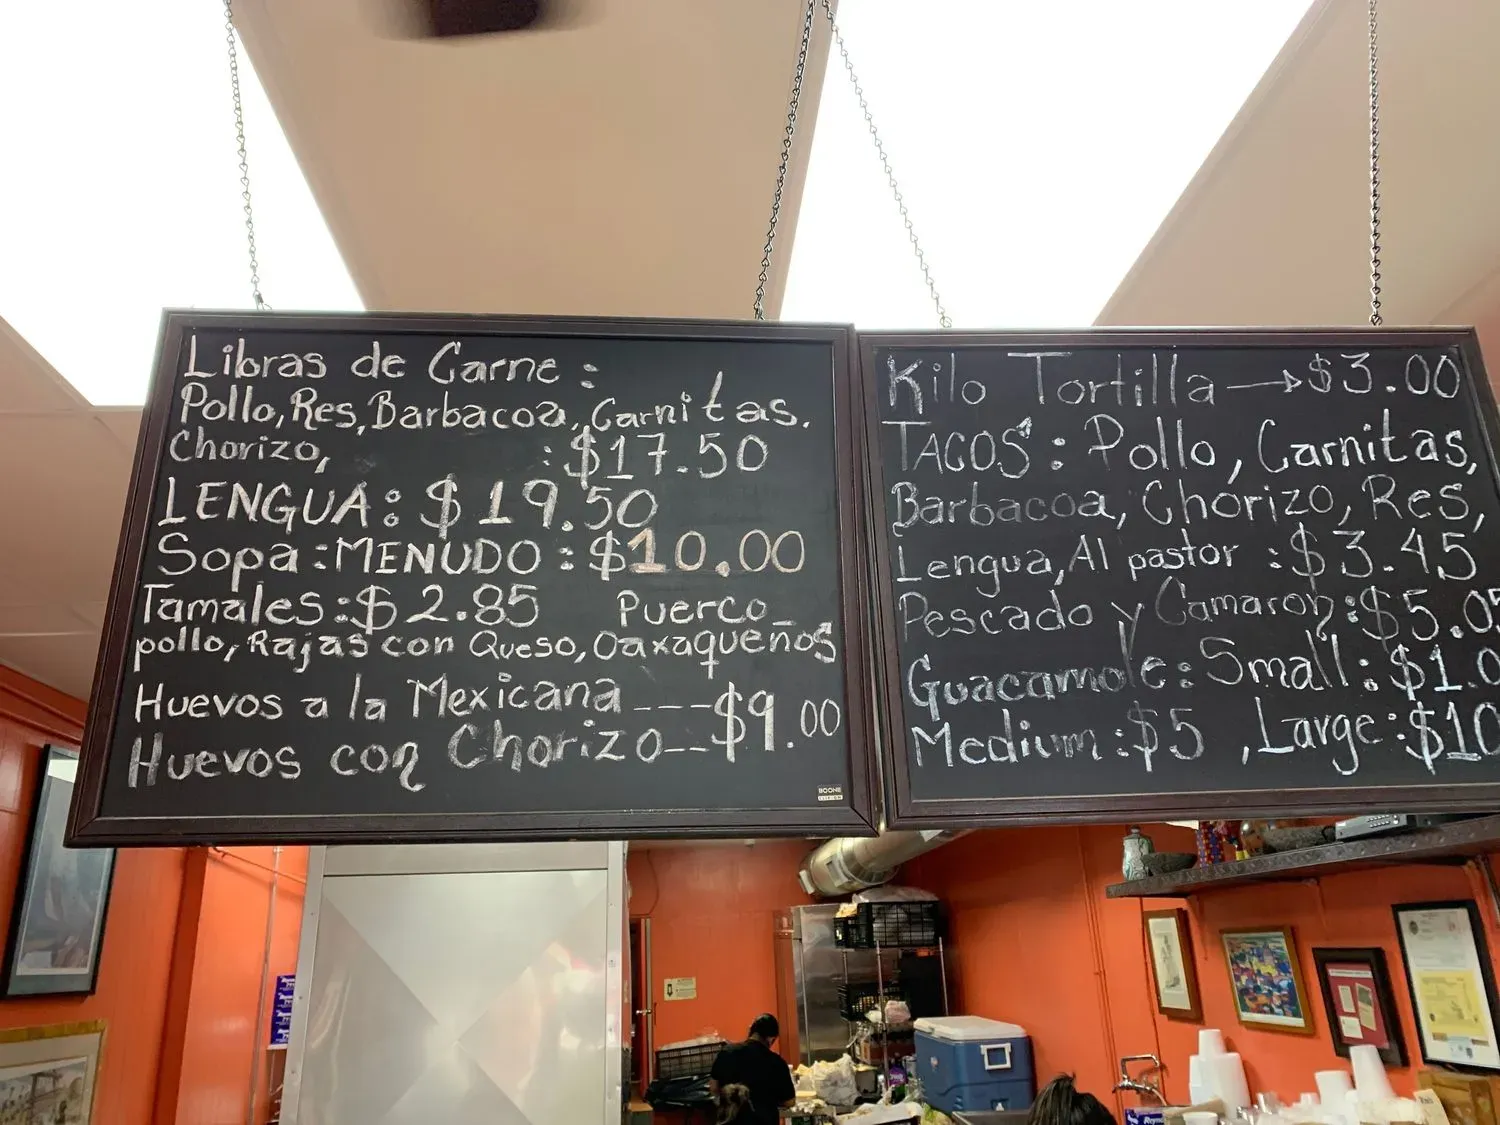 Libras de Carne :
Pollo, Res, Barbacoa, Carnitas.
Chorizo, : $17.50
LENGUA : $19.50
Sopa : MENUDO : $10.00
Tamales : $2.85 Puerco_
pollo, Rajas con Queso, Oaxaqueños
Huevos a la Mexicana ---$9.00
Huevos con Chorizo--
BOONE
Kilo Tortilla → $3.00
TACOS : Pollo, Carnitas,
Barbacoa, Chorizo, Res,
Lengua, Al pastor : $3.45
Pescado y Camaron : $5.05
Guacamole : Small : $1.0
Medium : $5 , Large : $10